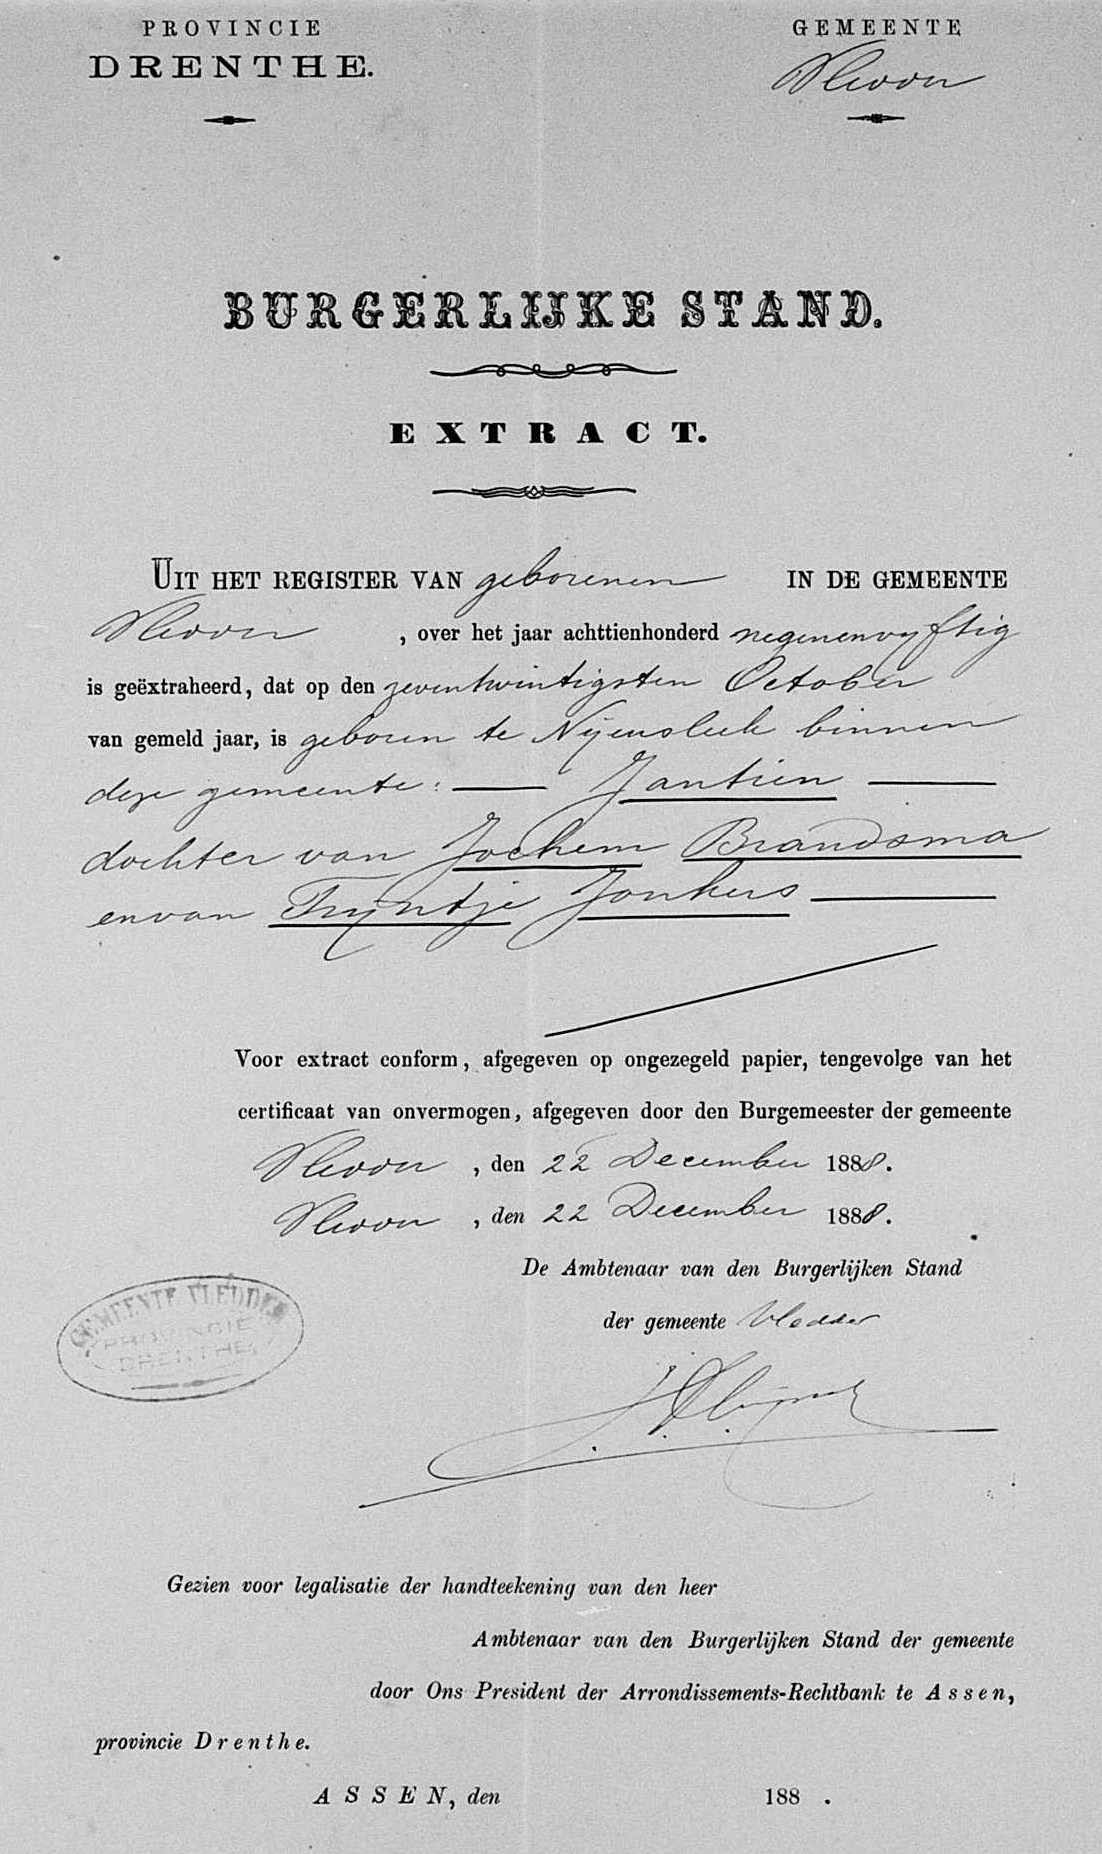 PROVINCIE
DRENTHE.
GEMEENTE
Vledder
BURGERLIJKE STAND.
EXTRACT.
UIT HET REGISTER VAN geborenen IN DE GEMEENTE
Vledder, over het jaar achttienhonderd negenenvyftig
is geëxtraheerd, dat op den zeventwintigsten October
van gemeld jaar, is geboren te Nijensleek binnen
deze gemeente: — Jantien —
dochter van Jochem Brandsma
en van Trijntje Jonkers —
Voor extract conform, afgegeven op ongezegeld papier, tengevolge van het
certificaat van onvermogen, afgegeven door den Burgemeester der gemeente
Vledder, den 22 December 1888.
Vledder, den 22 December 1888.
De Ambtenaar van den Burgerlijken Stand
der gemeente Vledder
GEMEENTE VLEDDER
PROVINCIE
DRENTHE
Gezien voor legalisatie der handteekening van den heer
Ambtenaar van den Burgerlijken Stand der gemeente
door Ons President der Arrondissements-Rechtbank te Assen,
provincie Drenthe.
ASSEN, den 188 .